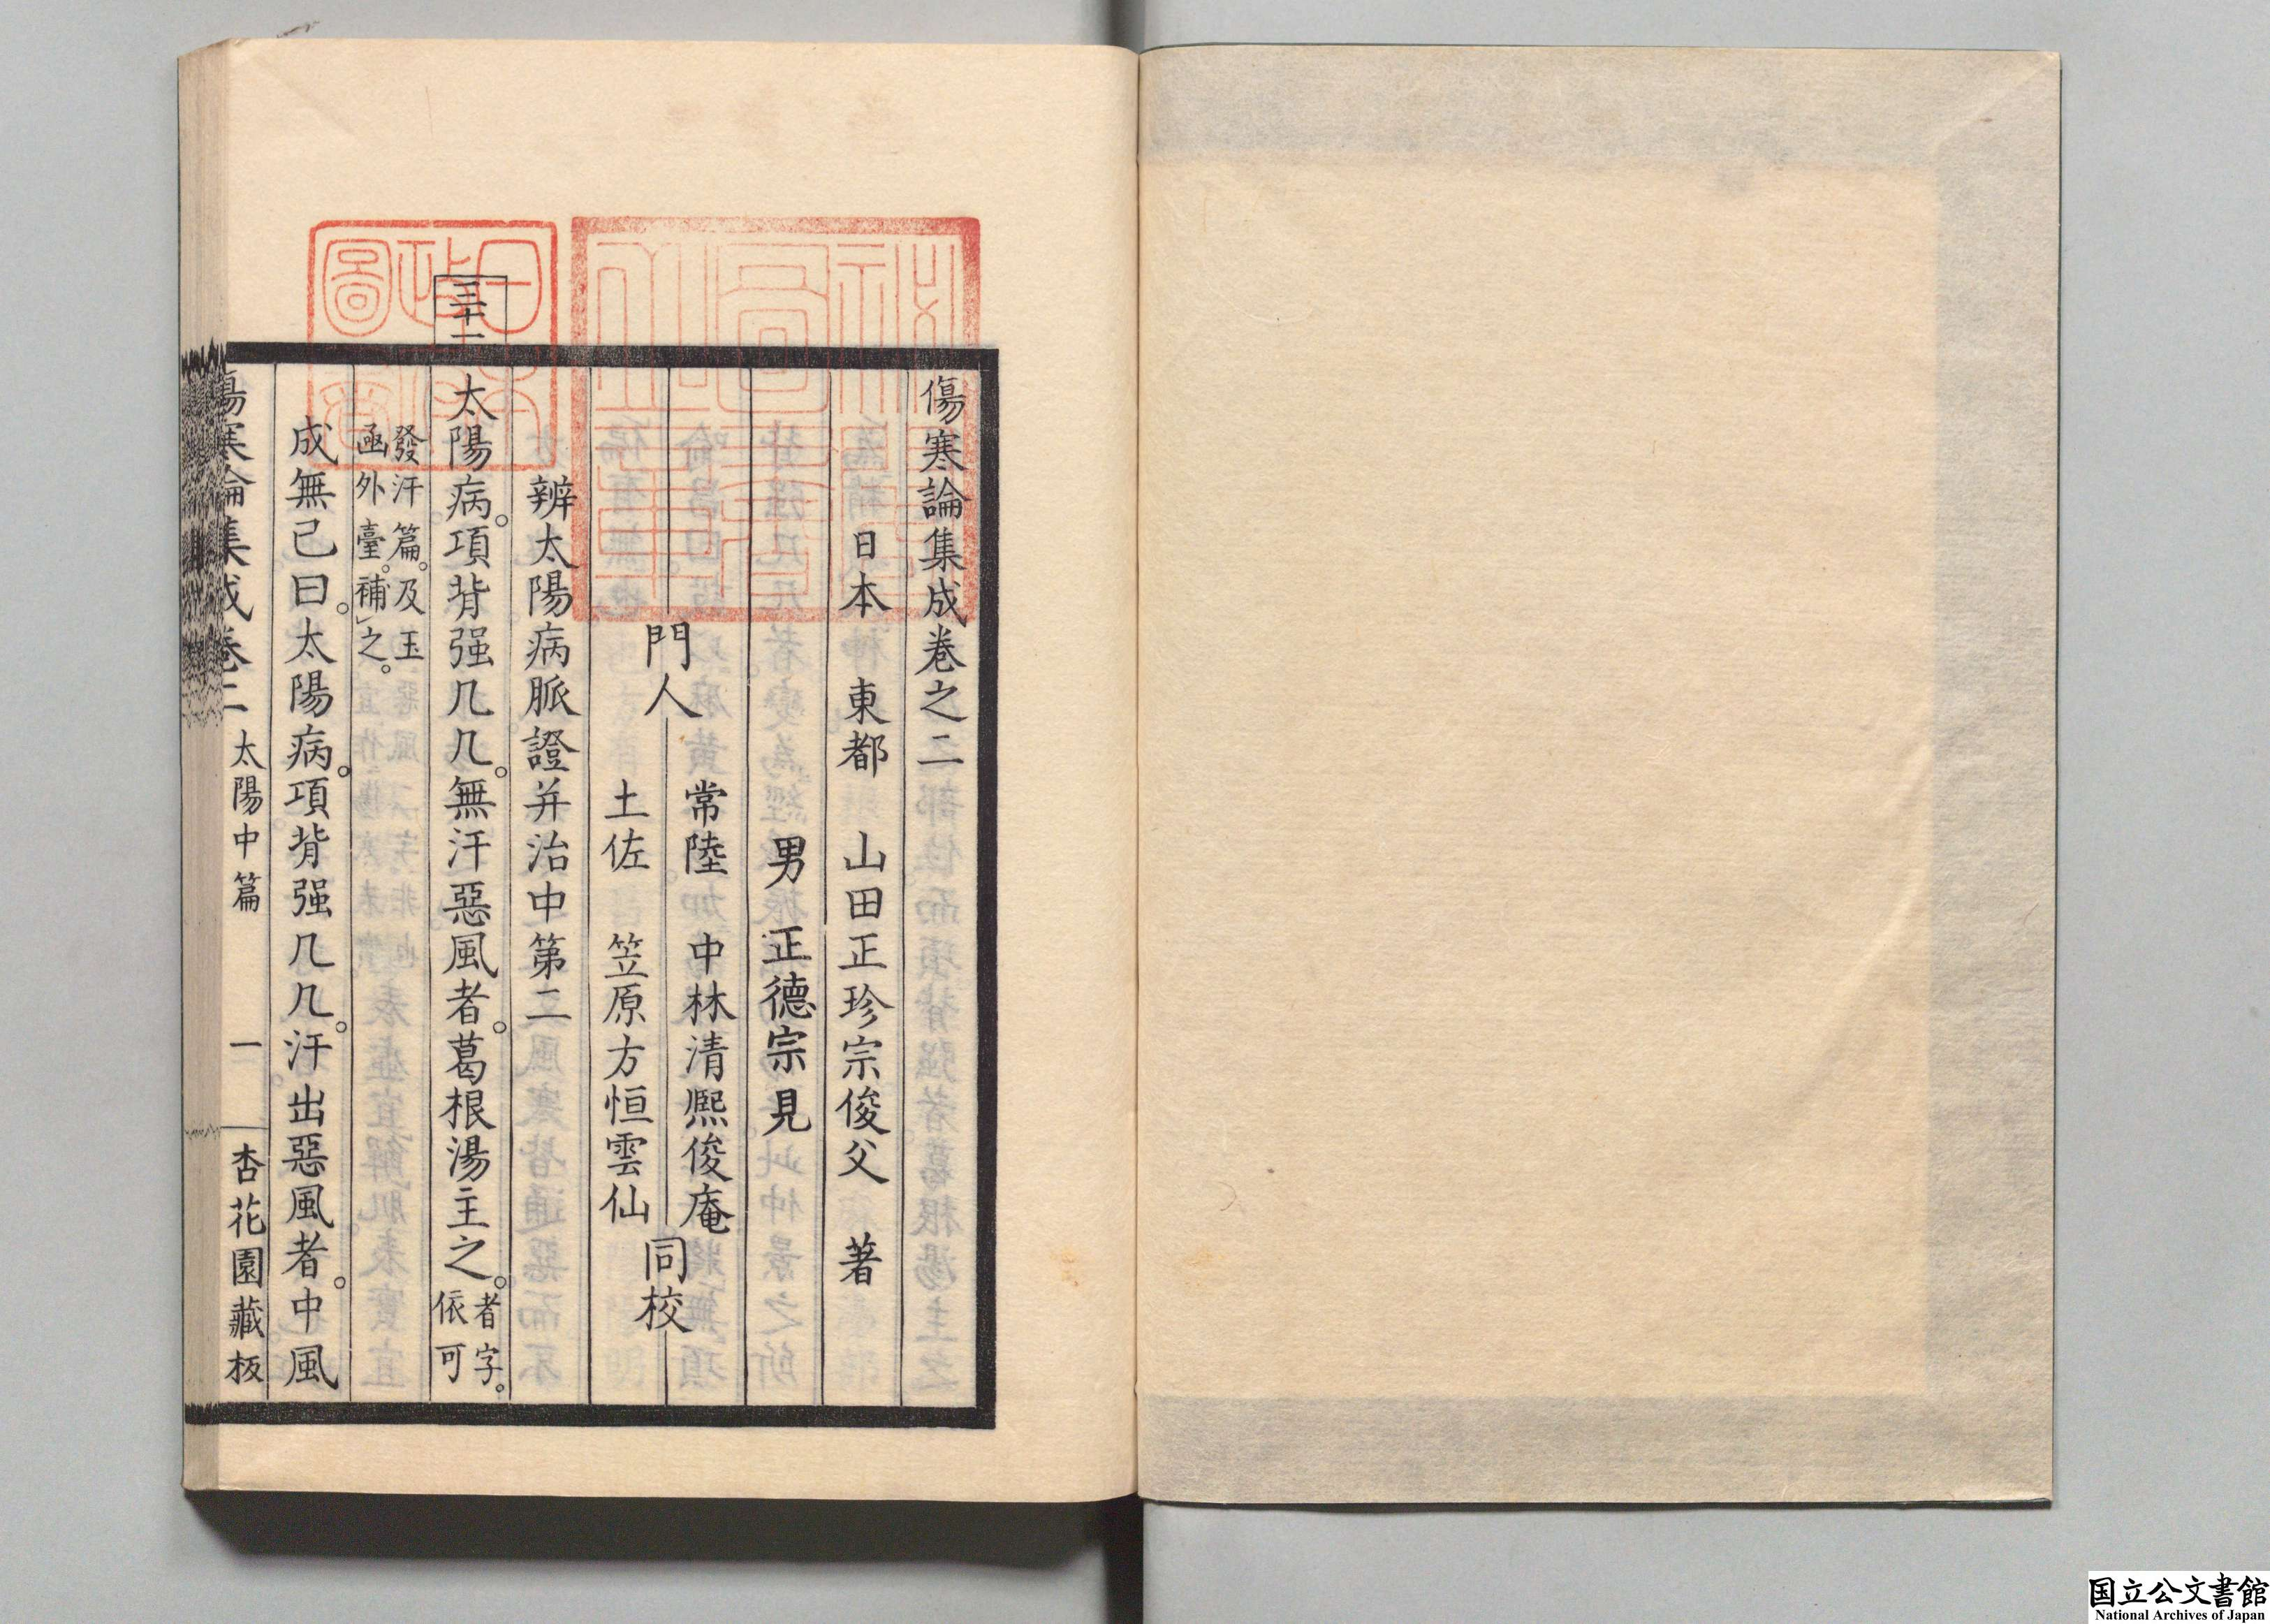 傷寒論集成卷之二
日本 東都 山田正珍宗俊父 著
男 正德宗見
門人 常陸 中林清熙俊庵 同校
土佐 笠原方恒雲仙
辨太陽病脈證并治中第二
三十一
太陽病。項背强几几。無汗惡風者。葛根湯主之。者字。依可
發汗篇。及玉函外臺。補之。
成無己曰。太陽病。項背强几几。汗出惡風者。中風
傷寒論集成卷二 太陽中篇 一 杏花園藏板
日本政府圖書
国立公文書館
National Archives of Japan